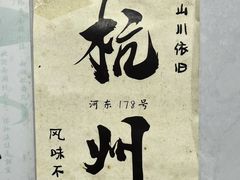 山川依旧
杭
河东178号
州
风味不